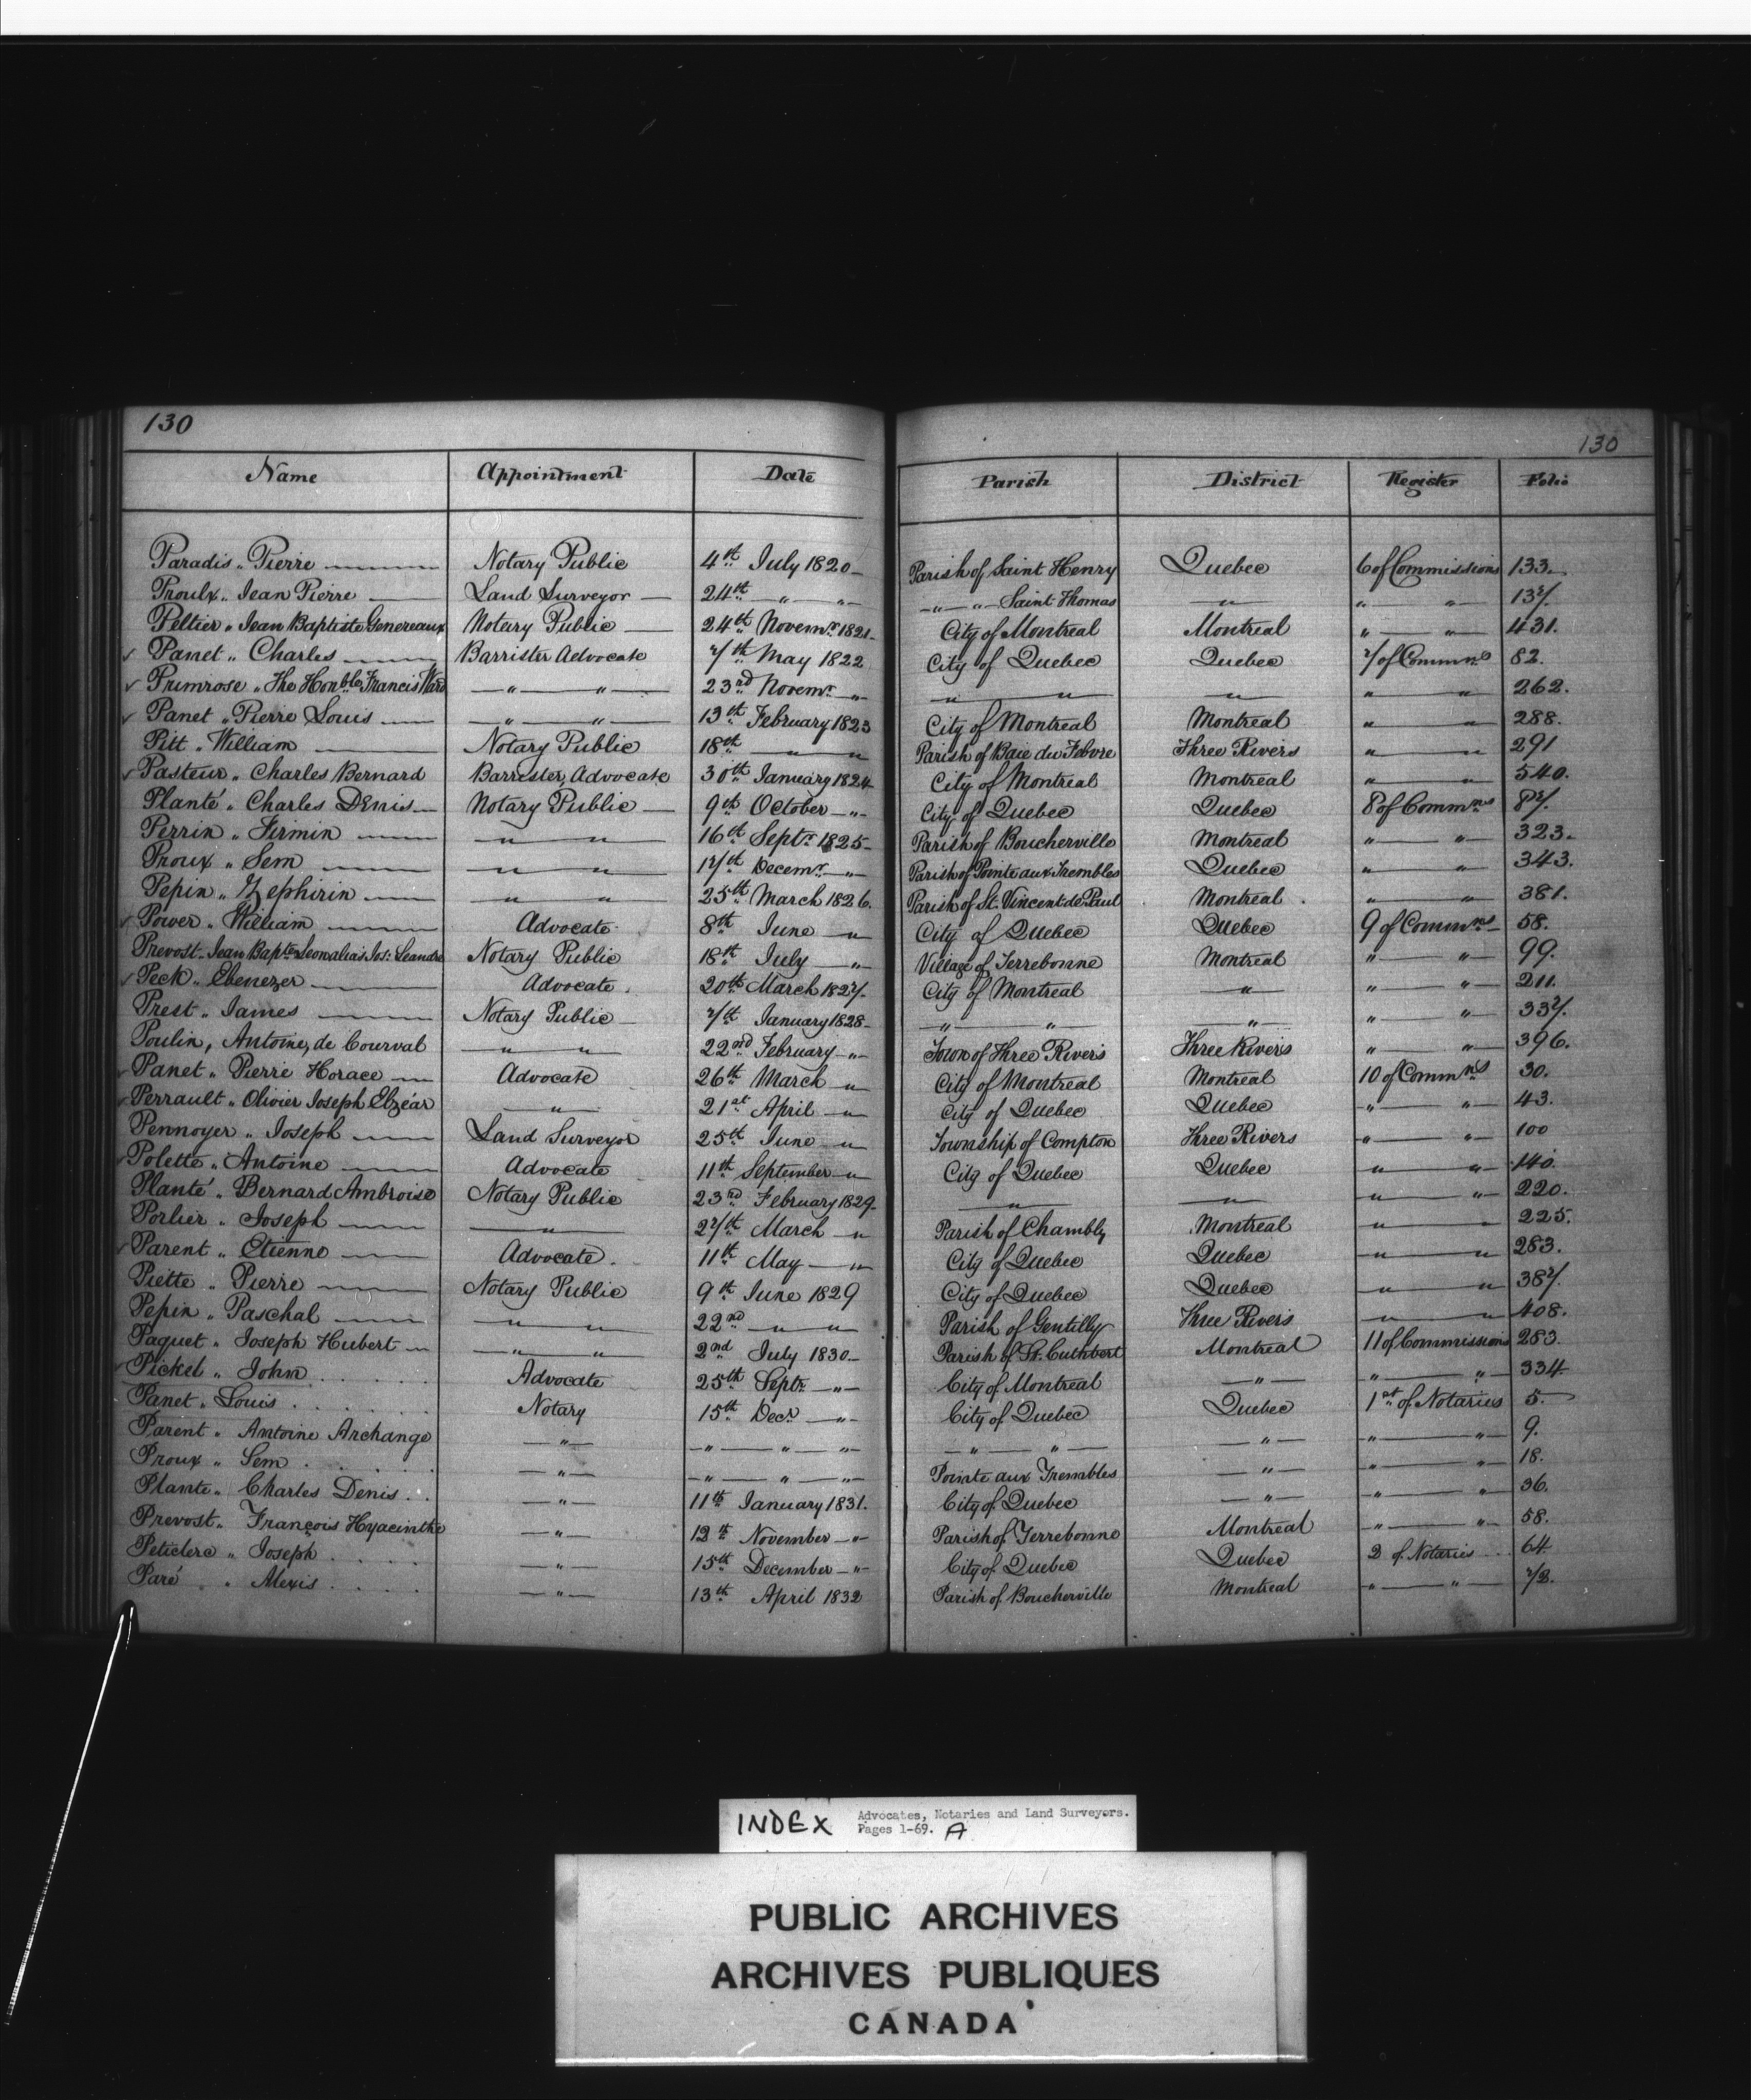 130
130
Name Appointment Date Parish District Register Folio
Paradis „ Pierre Notary Public 4th July 1820 Parish of Saint Henry Quebec 6 of Commissions 133.
Proulx „ Jean Pierre Land Surveyor 24th „ „ „ „ Saint Thomas „ „ „ 137.
Peltier „ Jean Baptiste Genereaux Notary Public 24th Novemr. 1821 City of Montreal Montreal „ „ 431.
✓ Panet „ Charles Barrister Advocate 7th May 1822 City of Quebec Quebec 7 of Commns 82.
✓ Primrose „ The Honble. Francis Ward „ „ 23rd Novemr. „ „ „ „ „ „ 262.
✓ Panet „ Pierre Louis „ „ 13th February 1823 City of Montreal Montreal „ „ 288.
Pitt „ William Notary Public 18th „ „ Parish of Baie du Febvre Three Rivers „ „ 291
✓ Pasteur „ Charles Bernard Barrister, Advocate 30th January 1824 City of Montreal Montreal „ „ 540.
Planté „ Charles Denis Notary Public 9th October „ City of Quebec Quebec 8 of Commns 87.
Perrin „ Firmin „ „ 16th Septr. 1825 Parish of Boucherville Montreal „ „ 323.
Proux „ Sem „ „ 17th Decemr. „ Parish of Pointe aux Trembles Quebec „ „ 343.
Pepin „ Zephirin „ „ 25th March 1826. Parish of St. Vincent de Paul Montreal „ „ 381.
✓ Power „ William Advocate 8th June „ City of Quebec Quebec 9 of Commns 58.
Prevost „ Jean Bapte. Jos: Leandre Notary Public 18th July „ Village of Terrebonne Montreal „ „ 99.
✓ Peck „ Ebenezer Advocate 20th March 1827. City of Montreal „ „ „ 211.
Prest „ James Notary Public 7th January 1828 „ „ „ „ „ 337.
Poulin, Antoine, de Courval „ „ 22nd February „ Town of Three Rivers Three Rivers „ „ 396.
✓ Panet „ Pierre Horace Advocate 26th March „ City of Montreal Montreal 10 of Commns 30.
✓ Perrault „ Olivier Joseph Elzéar „ 21st April „ City of Quebec Quebec „ „ 43.
Pennoyer „ Joseph Land Surveyor 25th June „ Township of Compton Three Rivers „ „ 100
✓ Polette „ Antoine Advocate 11th September „ City of Quebec Quebec „ „ 140.
Planté „ Bernard Ambroise Notary Public 23rd February 1829 „ „ „ „ 220.
Porlier „ Joseph „ 27th March „ Parish of Chambly Montreal „ „ 225.
✓ Parent „ Etienne Advocate 11th May „ City of Quebec Quebec „ „ 283.
Piette „ Pierre Notary Public 9th June 1829 City of Quebec Quebec „ „ 387.
Pepin „ Paschal „ „ 22nd „ „ Parish of Gentilly Three Rivers „ „ 408.
Paquet „ Joseph Hubert „ „ 2nd July 1830 Parish of St. Cuthbert Montreal 11 of Commissions 283.
✓ Pickel „ John Advocate 25th Septr. „ City of Montreal „ „ „ 334.
Panet „ Louis Notary 15th Decr. „ City of Quebec Quebec 1st of Notaries 5.
Parent „ Antoine Archange „ „ „ „ „ „ „ „ „ 9.
Proux „ Sem „ „ „ „ Pointe aux Trembles „ „ „ 18.
Plante „ Charles Denis „ 11th January 1831. City of Quebec „ „ „ 36.
Prevost „ François Hyacinthe „ 12th November „ Parish of Terrebonne Montreal „ „ 58.
Peticlerc „ Joseph „ 15th December „ City of Quebec Quebec 2 of Notaries 64
Paré „ Alexis „ 13th April 1832 Parish of Boucherville Montreal „ „ 73.
INDEX Advocates, Notaries and Land Surveyors.
Pages 1-69. A
PUBLIC ARCHIVES
ARCHIVES PUBLIQUES
CANADA